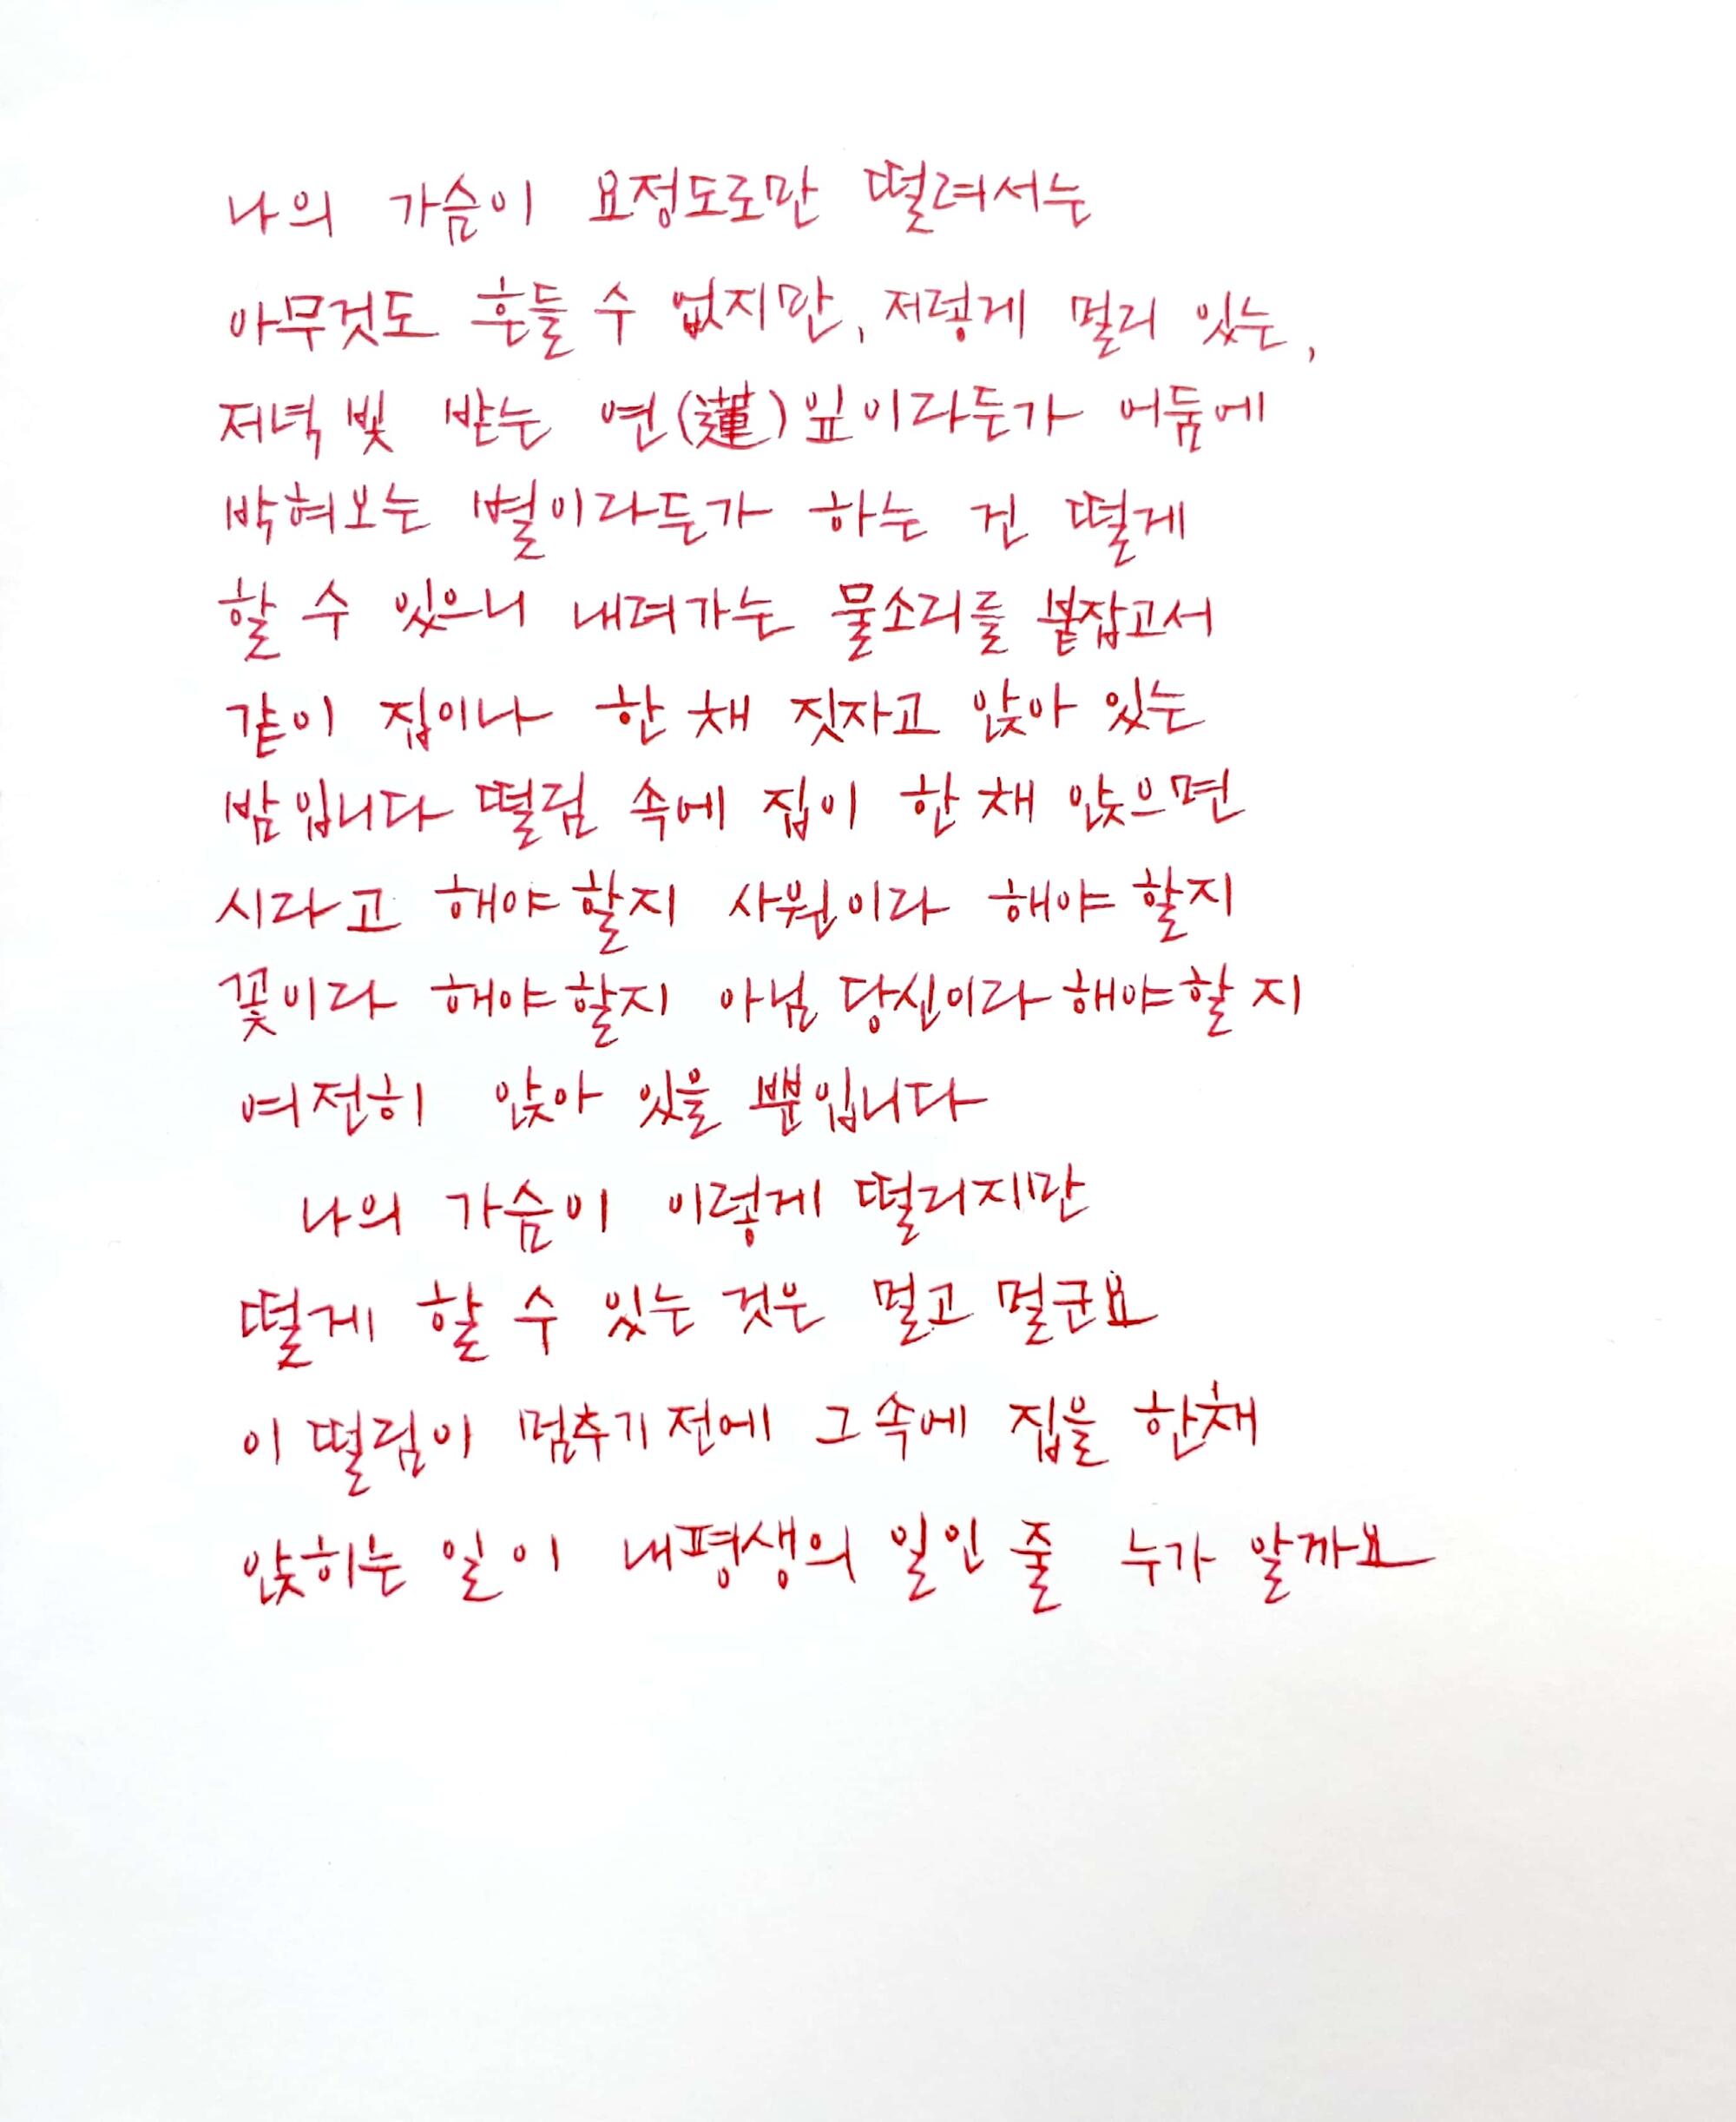 나의 가슴이 요정도로만 떨려서는
아무것도 흔들 수 없지만, 저렇게 멀리 있는,
저녁 빛 받는 연(蓮)잎이라든가 어둠에
박혀오는 별이라든가 하는 건 떨게
할 수 있으니 내려가는 물소리를 붙잡고서
같이 집이나 한 채 짓자고 앉아 있는
밤입니다 떨림 속에 집이 한 채 앉으면
시라고 해야 할지 사원이라 해야 할지
꽃이라 해야 할지 아님 당신이라 해야 할지
여전히 앉아 있을 뿐입니다
나의 가슴이 이렇게 떨리지만
떨게 할 수 있는 것은 멀고 멀군요
이 떨림이 멈추기 전에 그 속에 집을 한 채
앉히는 일이 내 평생의 일인 줄 누가 알까요